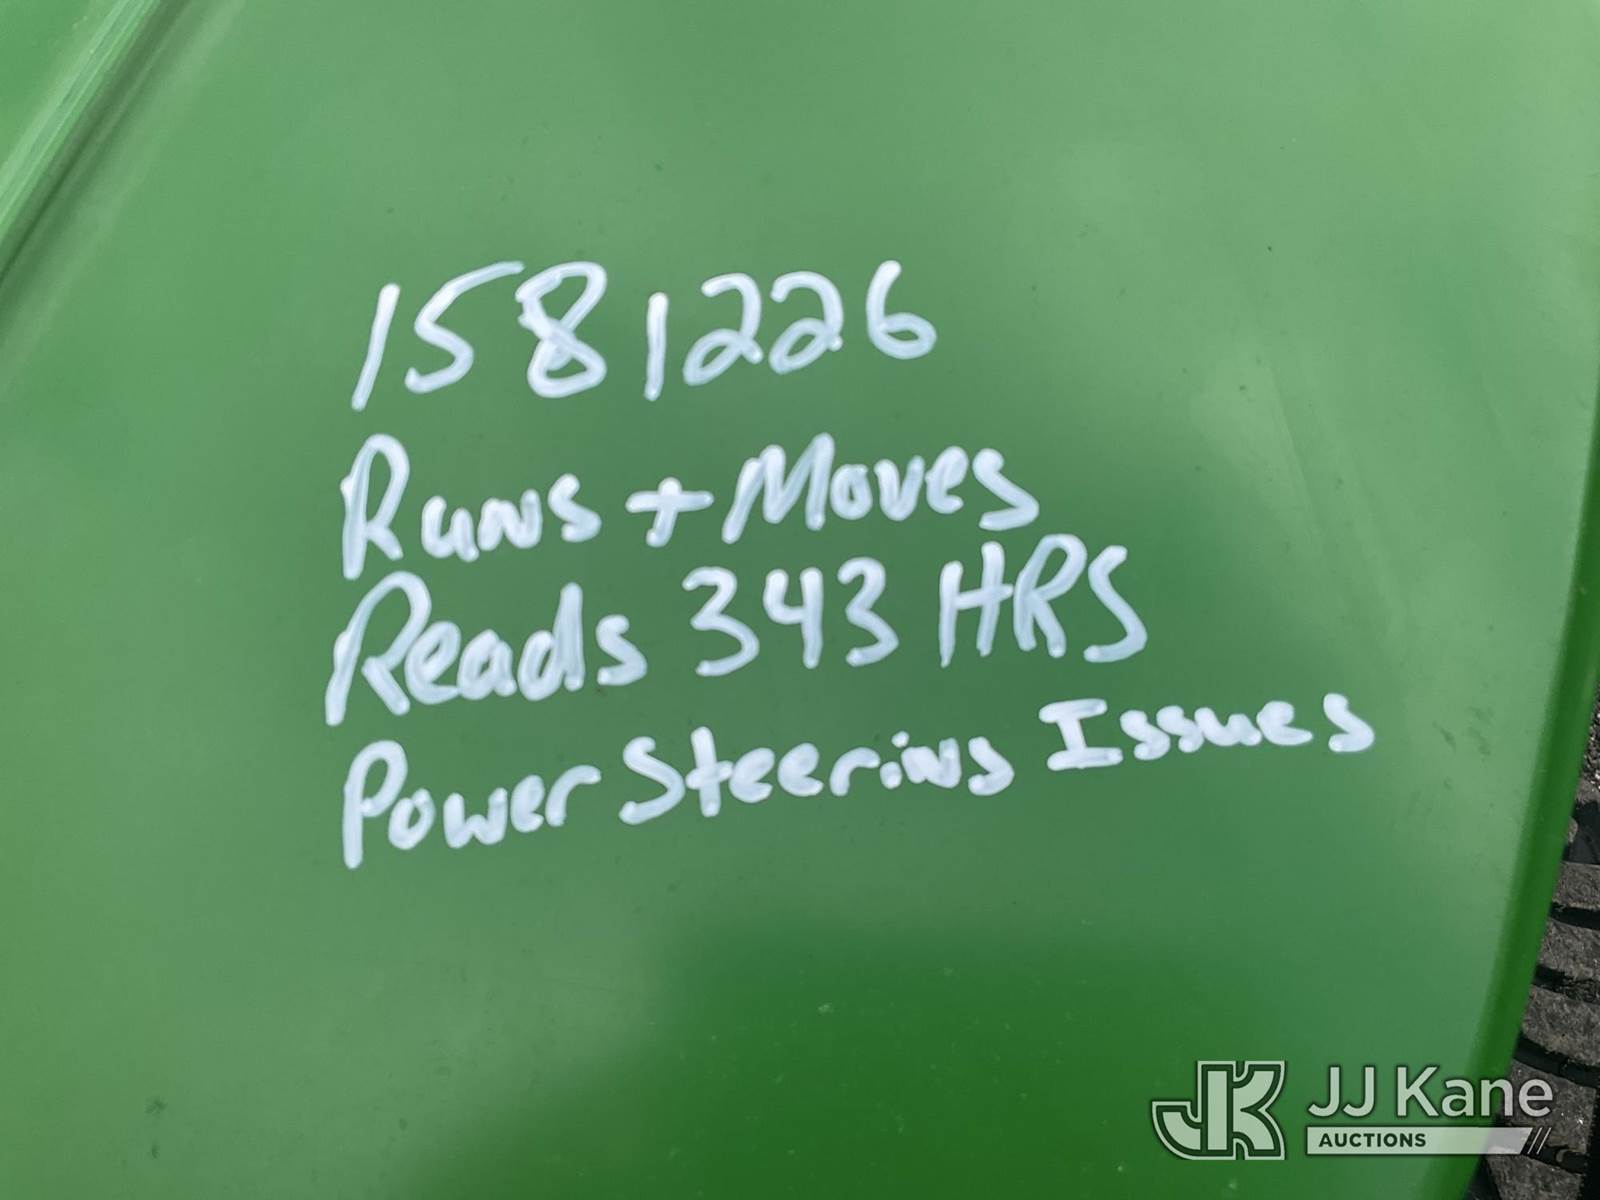 1581226
Runs + Moves
Reads 343 HRS
Power Steering Issues
JK JJ Kane
AUCTIONS